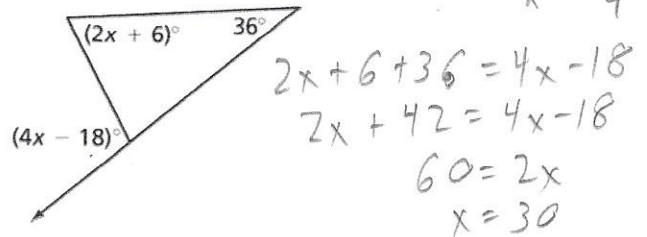 (2x + 6)°
36°
(4x − 18)°
2x+6+36=4x-18
2x+42=4x-18
60=2x
x=30